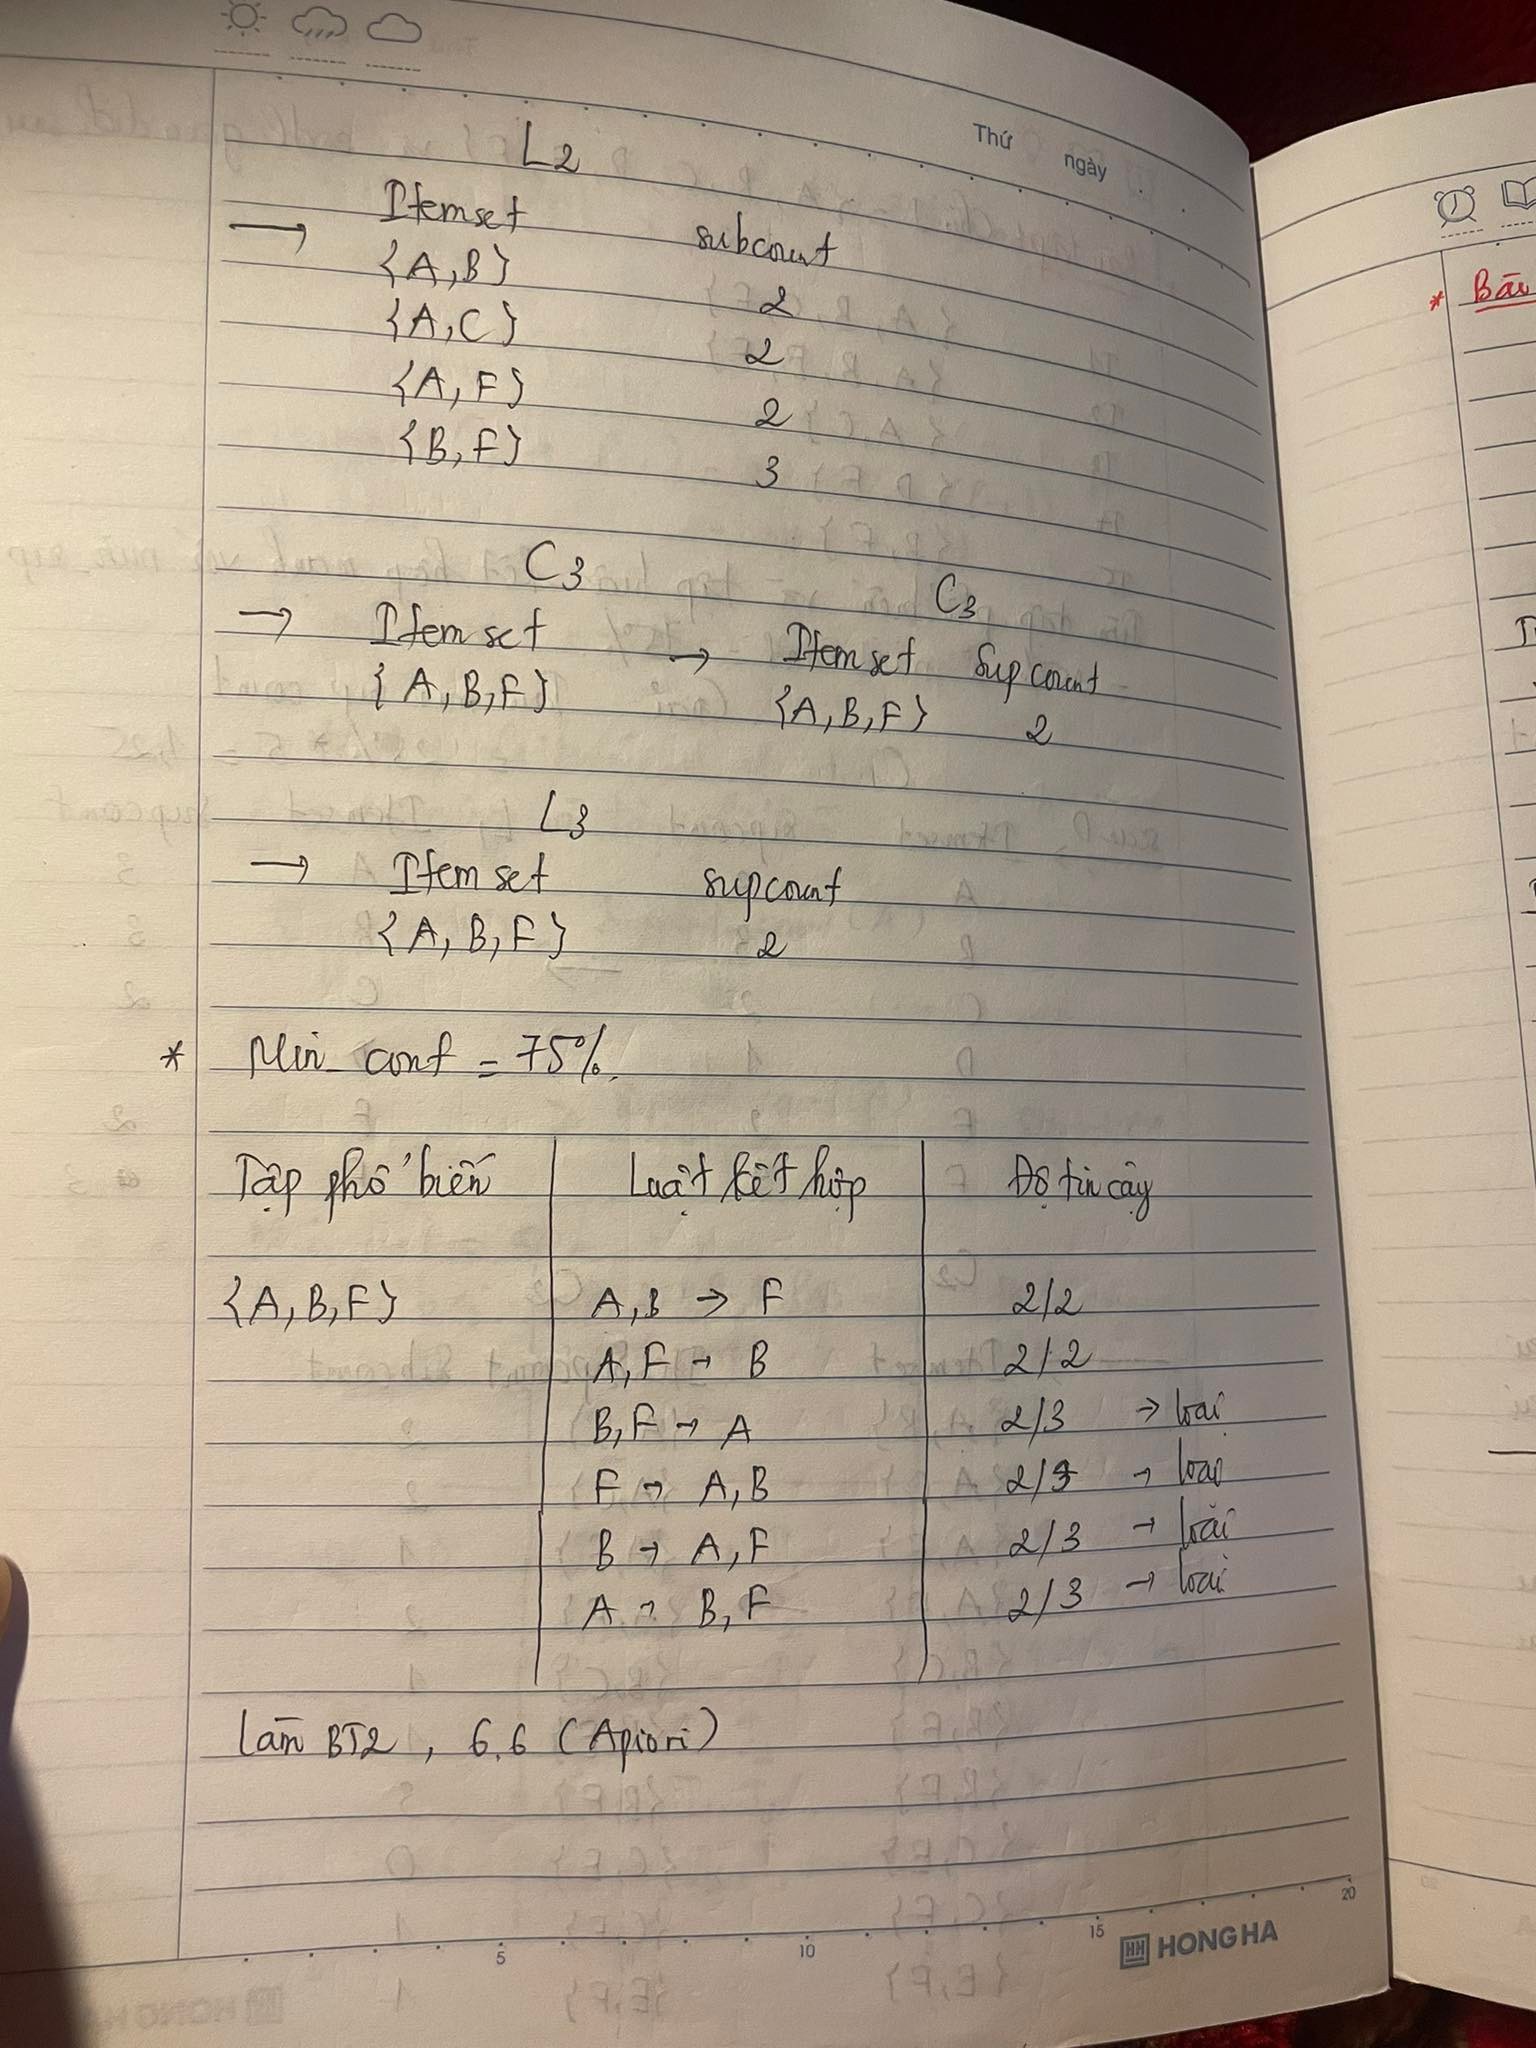 Thứ ngày
L2
→ Itemset subcount
{A,B} 2
{A,C} 2
{A,F} 2
{B,F} 3
C3
→ Itemset
{A,B,F}
C3
→ Itemset Supcount
{A,B,F} 2
L3
→ Itemset supcount
{A,B,F} 2
* Min conf = 75%.
Tập phổ biến Luật kết hợp Độ tin cậy
{A,B,F} A,B → F 2/2
A,F → B 2/2
B,F → A 2/3 → loại
F → A,B 2/3 → loại
B → A,F 2/3 → loại
A → B,F 2/3 → loại
Làm BT2, 6.6 (Apiori)
5 10 15 20
HH HONG HA
* Bài